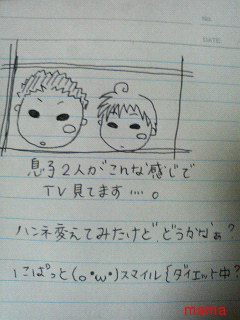 No.
DATE
息子2人がこんな感じで
TV見てます….。
ハンネ変えてみたけどどうかなぁ?
にこぱっと(o・ω・)スマイル{ダイエット中?
mama